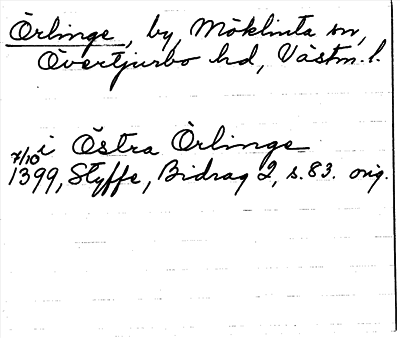 Örlinge, by, Möklinta sn,
Övertjurbo hd, Västm. l.
i Östra Örlinge
7/10 1399, Styffe, Bidrag 2, s. 83. orig.